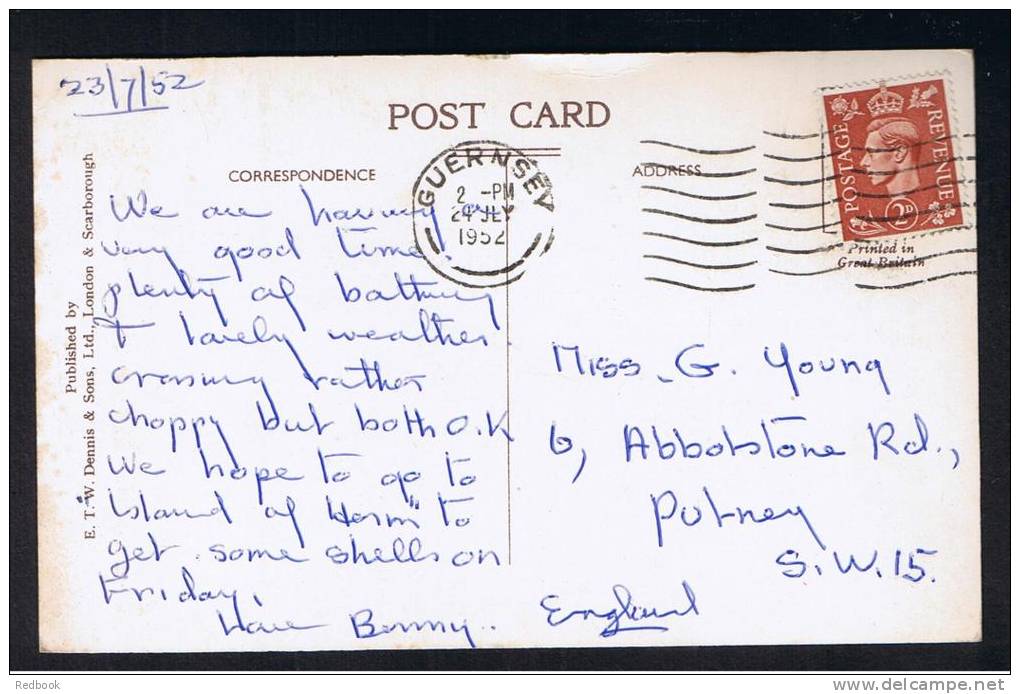 23/7/52
POST CARD
CORRESPONDENCE
ADDRESS
GUERNSEY
2 -PM
24 JLY
1952
POSTAGE
REVENUE
2D
Printed in
Great Britain
Published by
E. T. W. Dennis & Sons, Ltd., London & Scarborough
We are having a
very good time,
plenty of bathing
& lovely weather.
crossing rather
choppy but both O.K
We hope to go to
Island of Herm" to
get some shells on
Friday.
Love Bunny.
Miss. G. Young
6, Abbotstone Rd.,
Putney
S.W.15.
England
Redbook
www.delcampe.net